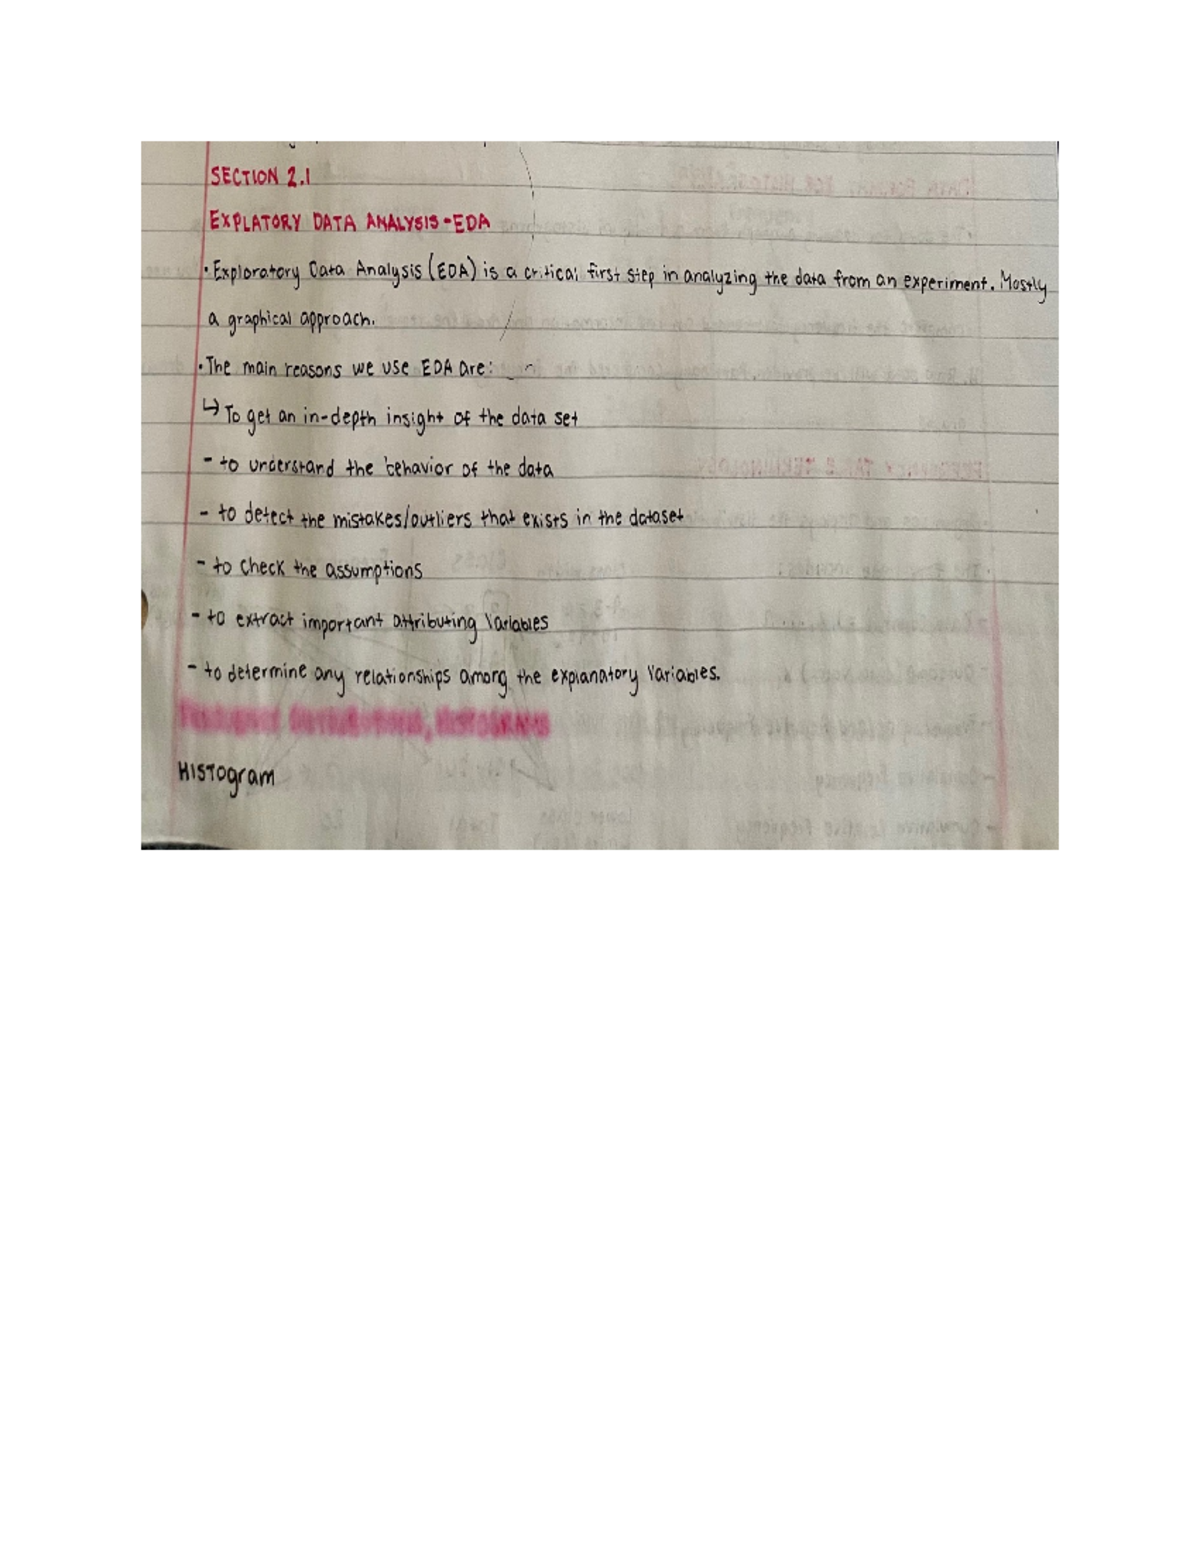 SECTION 2.1
EXPLATORY DATA ANALYSIS-EDA
• Exploratory Data Analysis (EDA) is a critical first step in analyzing the data from an experiment. Mostly
a graphical approach.
• The main reasons we use EDA are:
↳ To get an in-depth insight of the data set
- to understand the behavior of the data
- to detect the mistakes/outliers that exists in the dataset
- to check the assumptions
- to extract important attributing variables
- to determine any relationships among the explanatory variables.
HISTOGRAMS
HISTogram